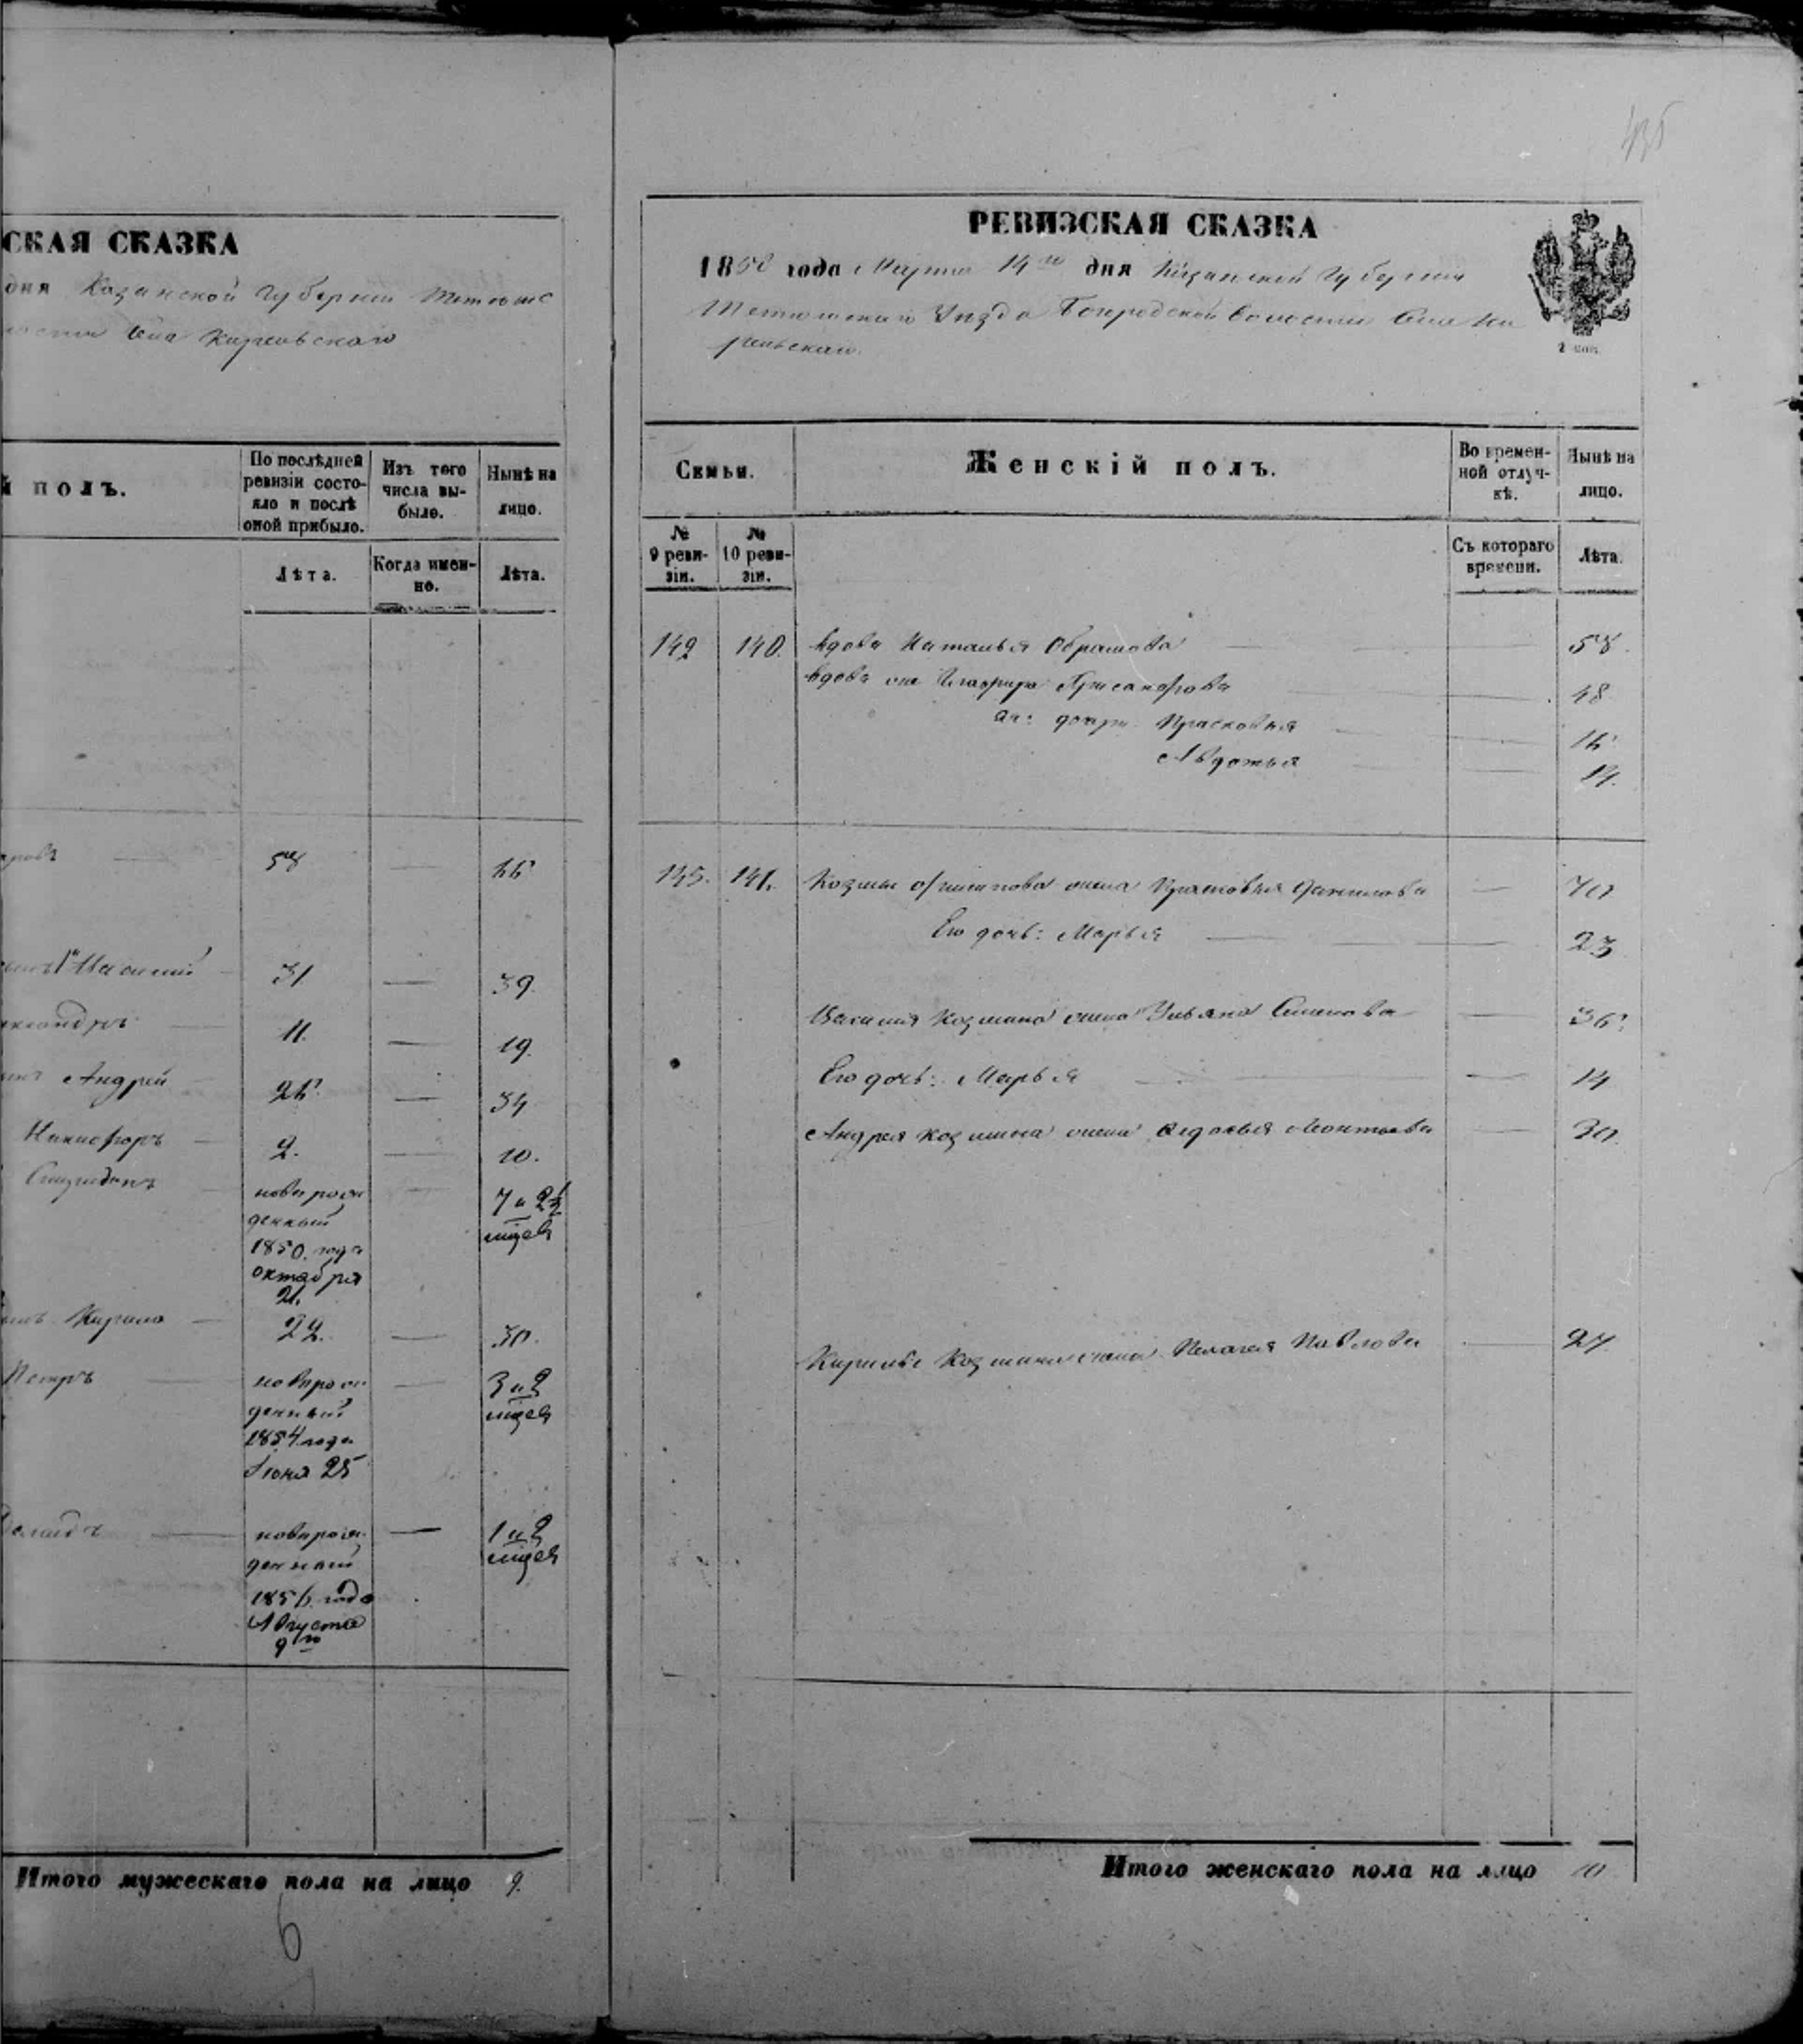 СКАЯ СКАЗКА
дня Казанской Губернии Тетюшс
Села Кирельскаго
й полъ.
По послѣдней
ревизіи состо-
яло и послѣ
оной прибыло.
Изъ того
числа вы-
было.
Нынѣ на
лицо.
Лѣта.
Когда имен-
но.
Лѣта.
58 — 66
31 — 39.
11. — 19.
Андрей 26. — 34
Никифоръ — 2. — 10.
новорож
денный
1850. года
октября
21.
7 и
мцев
Кирило — 22. — 30.
Петръ — новорож
денный
1854 года
Июня 25
— 3 и
мцев
— новорож
денный
1856. года
Августа
9го
— 1 и
мцев
Итого мужескаго пола на лицо 9.
6
435
РЕВИЗСКАЯ СКАЗКА
1858 года Марта 14го дня Казанской Губернии
Тетюшскаго Уѣзда Волости Села Ки
рельскаго.
2 коп.
Семьи.
Женскій полъ.
Во времен-
ной отлуч-
кѣ.
Нынѣ на
лицо.
№
9 реви-
зіи.
№
10 реви-
зіи.
Съ котораго
времени.
Лѣта.
142 140. вдова Наталья Обрамова — 58.
вдова — 48.
дочри Прасковья — 16
Авдотья — 14.
143. 141. Козмы жена Прасковья Данилова — 70
Его дочь: Марья — 23
Василия Козмина жена Ульяна Семенова — 36.
Его дочь: Марья — 14
Андрея Козмина жена Федосья Леонтьева — 30.
Кирилы Козмина жена Пелагея Павлова — 27
Итого женскаго пола на лицо 10